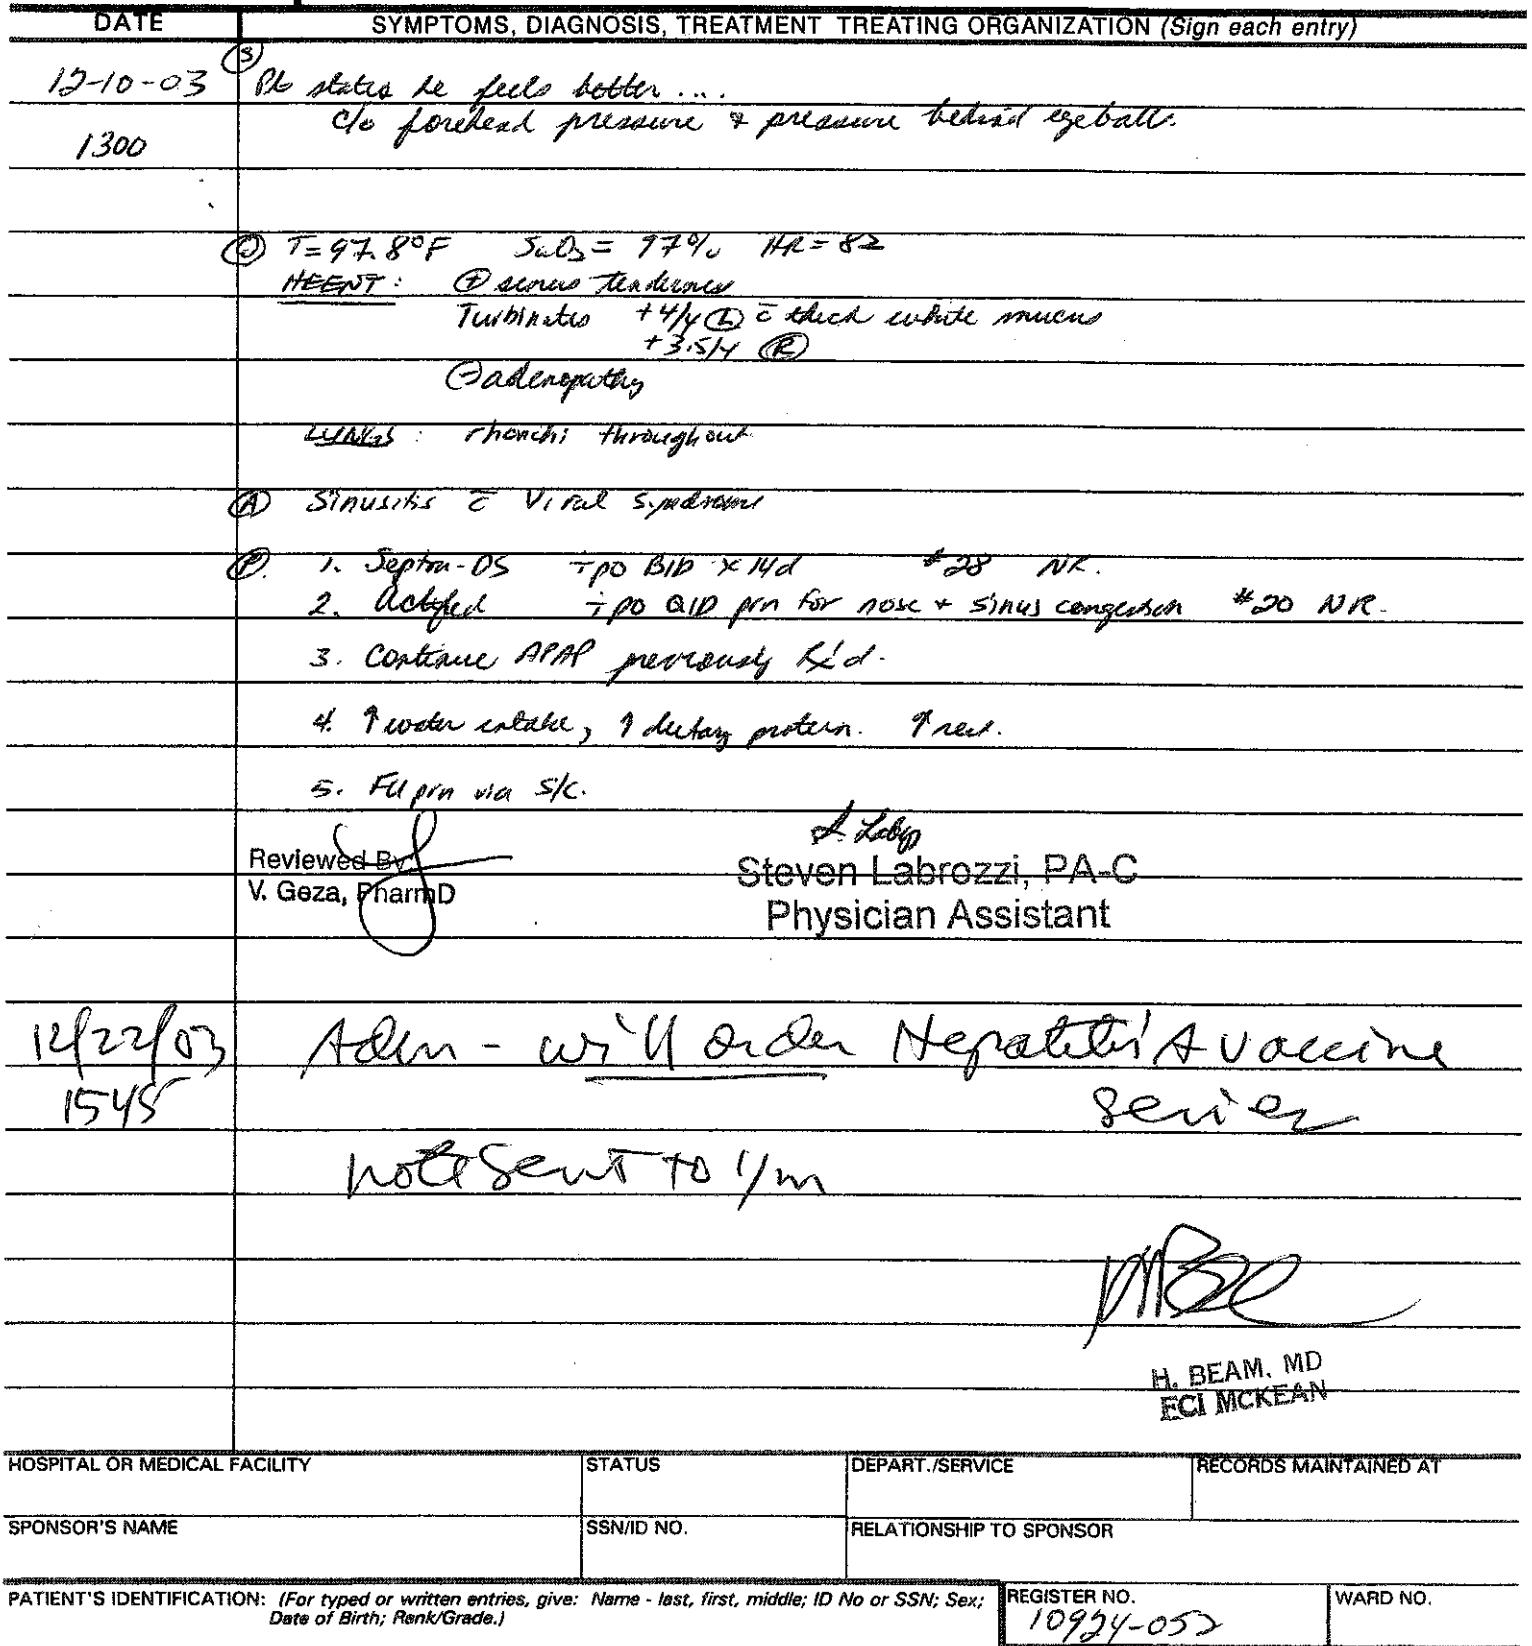 DATE SYMPTOMS, DIAGNOSIS, TREATMENT TREATING ORGANIZATION (Sign each entry)
Ⓢ
12-10-03 Pt states he feels better ....
c/o forehead pressure & pressure behind eyeballs.
1300
Ⓞ T=97.8°F SaO₂= 97% HR=82
HEENT: ⊕ sinus tenderness
Turbinates +4/4 Ⓛ c̄ thick white mucus
+3.5/4 Ⓡ
⊖ adenopathy
LUNGS: rhonchi throughout
Ⓐ Sinusitis c̄ Viral Syndrome
Ⓟ. 1. Septra-DS i po BID x 14d #28 NR.
2. Actifed i po QID prn for nose + sinus congestion #20 NR.
3. Continue APAP previously Rx'd.
4. ↑ water intake, ↑ dietary protein. ↑ rest.
5. FU prn via S/C.
Reviewed By
V. Geza, PharmD
Steven Labrozzi, PA-C
Physician Assistant
12/22/03 Adm - will order Hepatitis A vaccine
1545 series
note sent to I/m
H. BEAM, MD
FCI MCKEAN
HOSPITAL OR MEDICAL FACILITY STATUS DEPART./SERVICE RECORDS MAINTAINED AT
SPONSOR'S NAME SSN/ID NO. RELATIONSHIP TO SPONSOR
PATIENT'S IDENTIFICATION: (For typed or written entries, give: Name - last, first, middle; ID No or SSN; Sex; REGISTER NO. WARD NO.
Date of Birth; Rank/Grade.) 10924-052